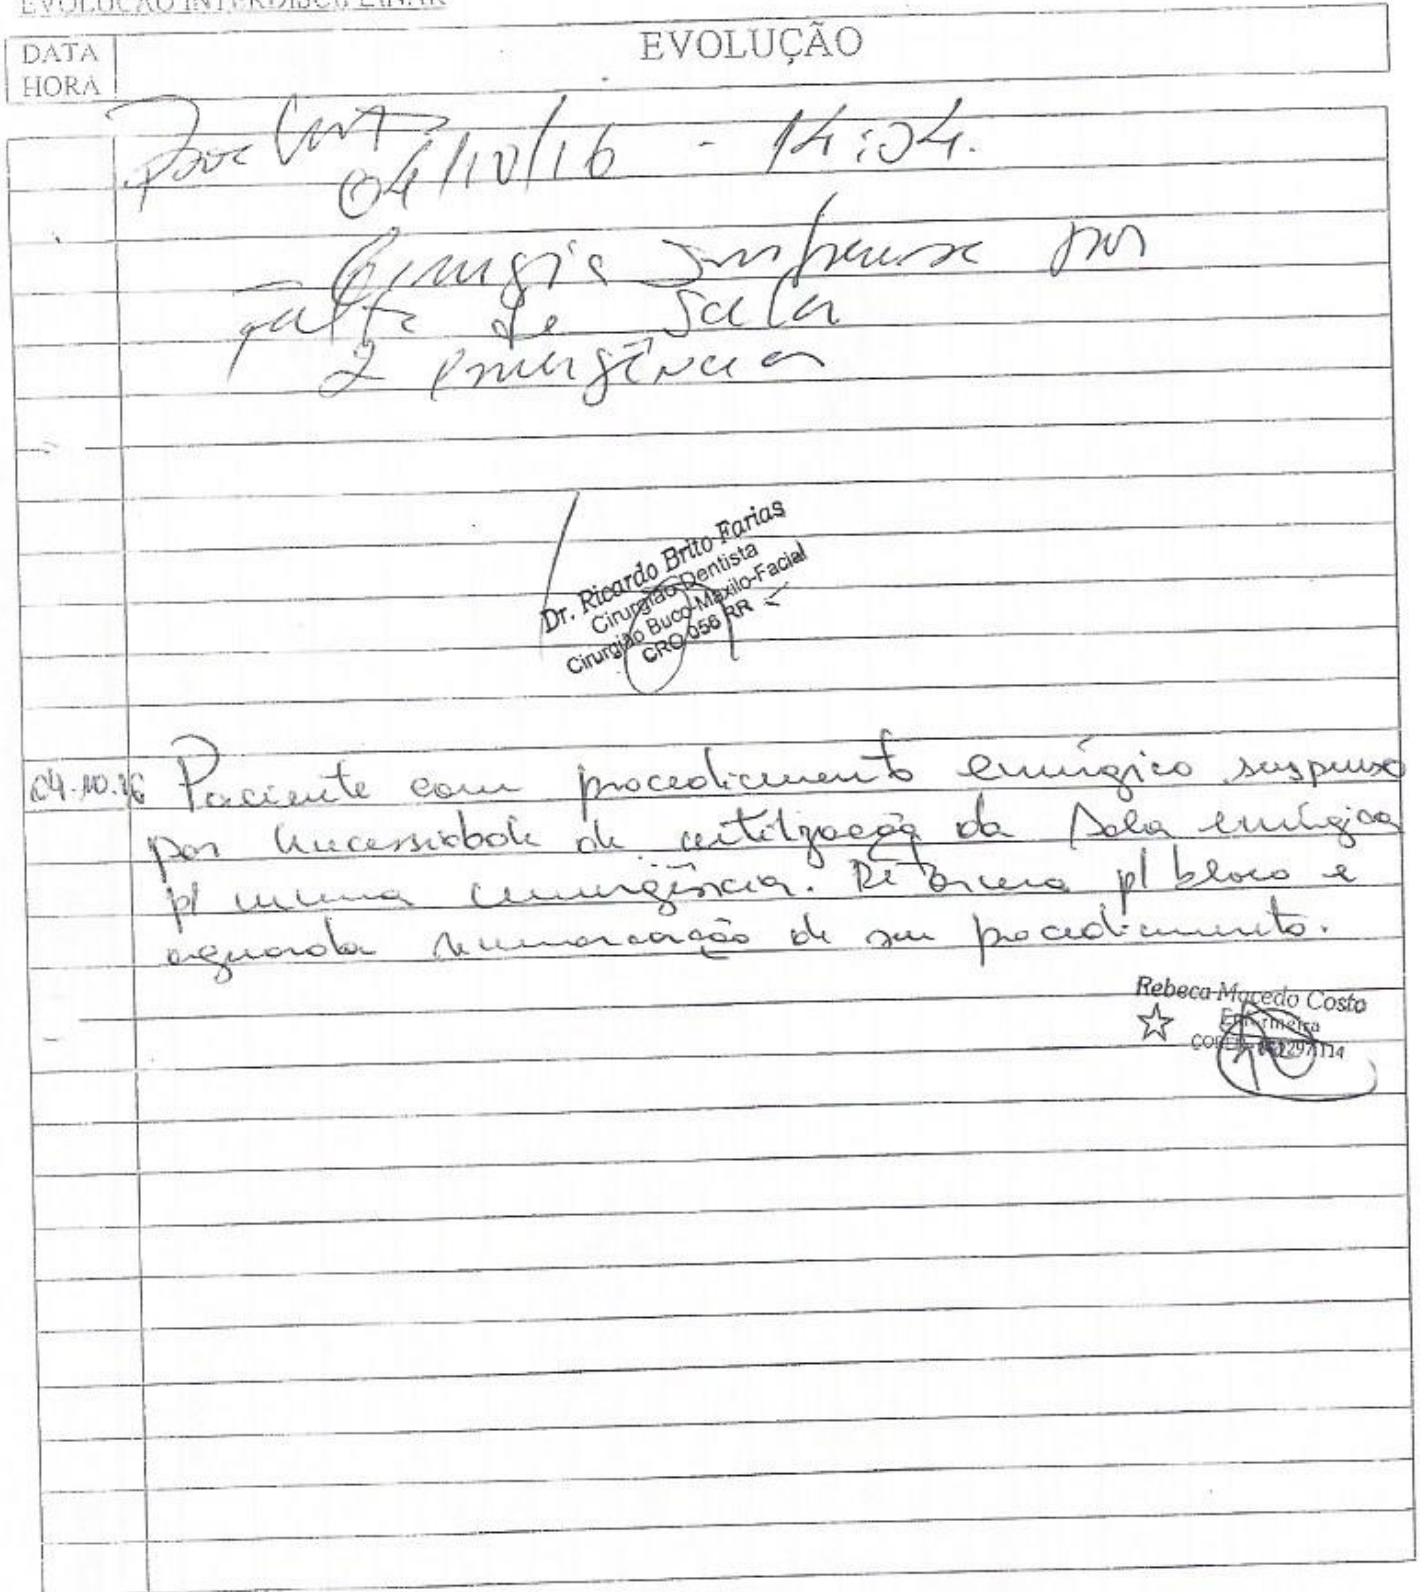 EVOLUÇÃO INTERDISCIPLINAR
DATA
HORA
EVOLUÇÃO
04/10/16 - 14:04.
- Cirurgia suspensa por
falta de sala
2 emergências
Dr. Ricardo Brito Farias
Cirurgião Dentista
Cirurgião Buco-Maxilo-Facial
CRO 056 RR
04.10.16 Paciente com procedimento cirúrgico suspenso
por necessidade de utilização da sala cirúrgica
p/ uma emergência. Retorna p/ bloco e
aguarda remarcação de seu procedimento.
Rebeca Macedo Costa
Enfermeira